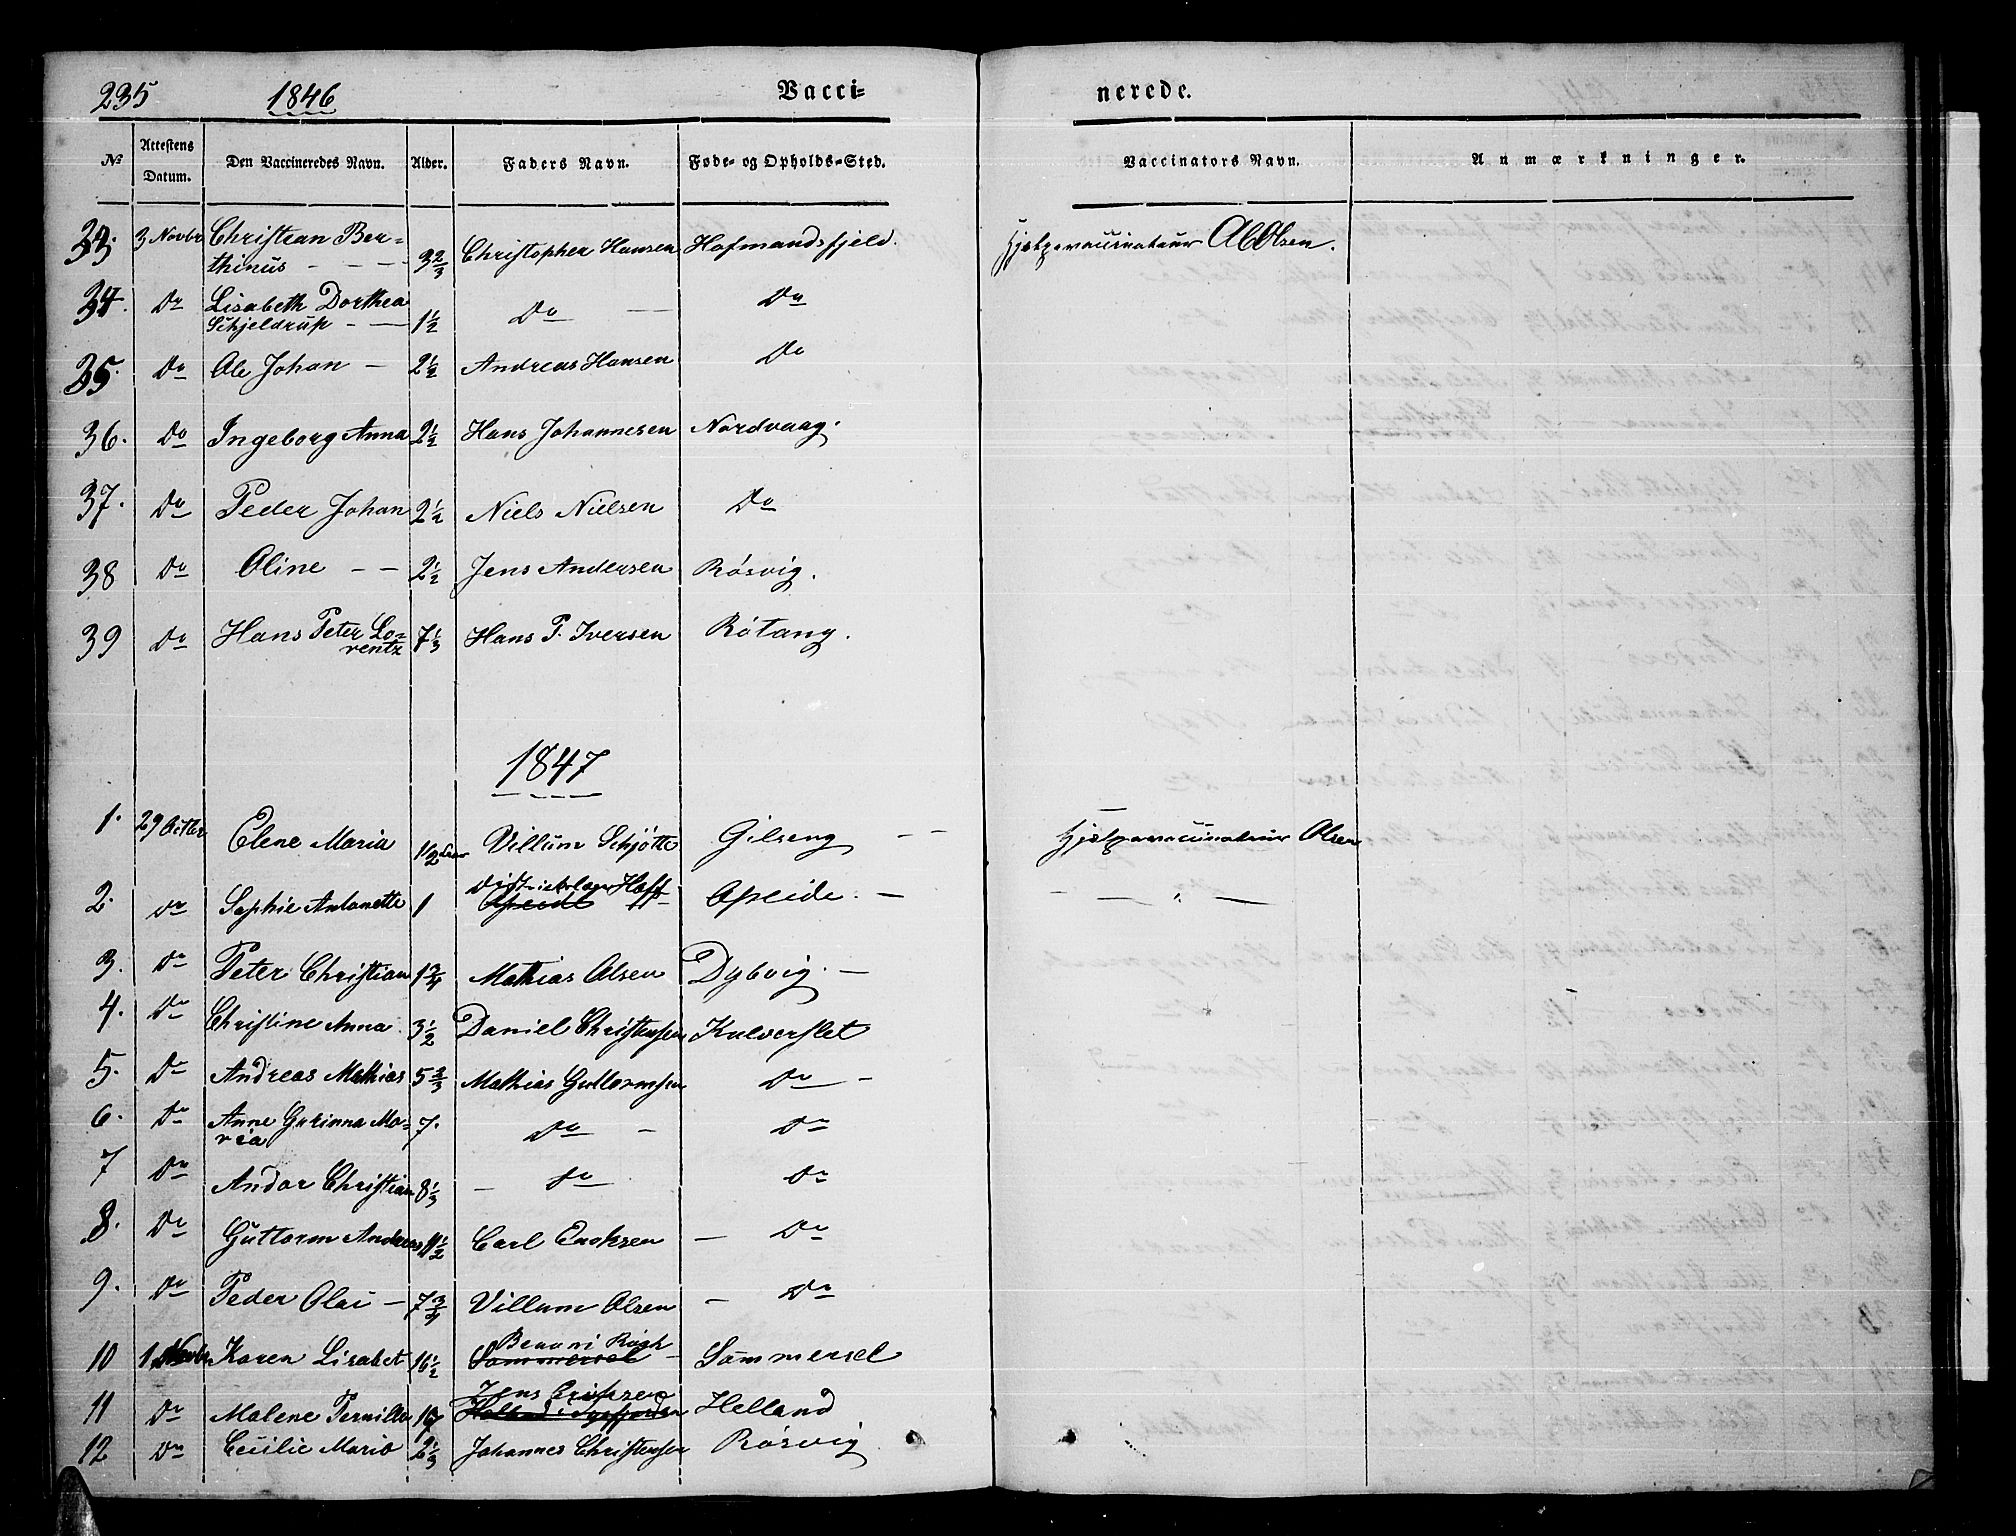 235 1846 Vacci- nerede.
№ Attestens Datum. Den Vaccineredes Navn. Alder. Faders Navn. Føde- og Opholds-Sted. Vaccinators Navn. Anmærkninger.
33. 3 Novbr Christian Ber- Christopher Hansen Hofmandsfjeld. Hjelpevaccinateur Olsen.
thinus - - - 3 2/3
34. Do Lisabeth Dorthea Do
Schjeldrup - - 1 1/2 Do -
35. Do Ole Johan - 2 1/2 Andreas Hansen Do
36. Do Ingeborg Anna 2 1/2 Hans Johannesen Nordvaag.
37. Do Peder Johan 2 1/2 Niels Nielsen Do
38 Do Oline - - 2 1/2 Jens Andersen Røsvig.
39 Do Hans Peter Lo- 7 1/3 Hans P. Iversen Røtang.
rentz
1847
1. 29 Octbr Elene Maria 1 1/2 Villum Schjøtte Gilseng - - Hjelpevaccinateur Olsen
2. Do Sophie Antonette 1 Districtslæge Hoff Apseide. - - " -
3. Do Peter Christian 1 3/4 Mathias Olsen Dybvig. -
4. Do Christine Anna. 3 1/2 Daniel Christensen Kulverslet
5. Do Andreas Mathias 5 2/3 Mathias Guttormsen Do -
6. Do Anne Gurinna Ma- 7. Do - Do
ria
7 Do Andor Christian 8 1/3 - Do Do
8. Do Guttorm Andreas 11 1/2 Carl Enoksen - Do
9. Do Peder Olai - 7 3/4 Villum Olsen - Do
Benoni Røgh
10 1 Novbr Karen Lisabet 16 1/2 Sommersel - Sommersel
Jens Eriksen
11 Do Malene Pernilla 17 Helland
12 Do Cecilie Maria 2 1/3 Johannes Christensen Røsvig